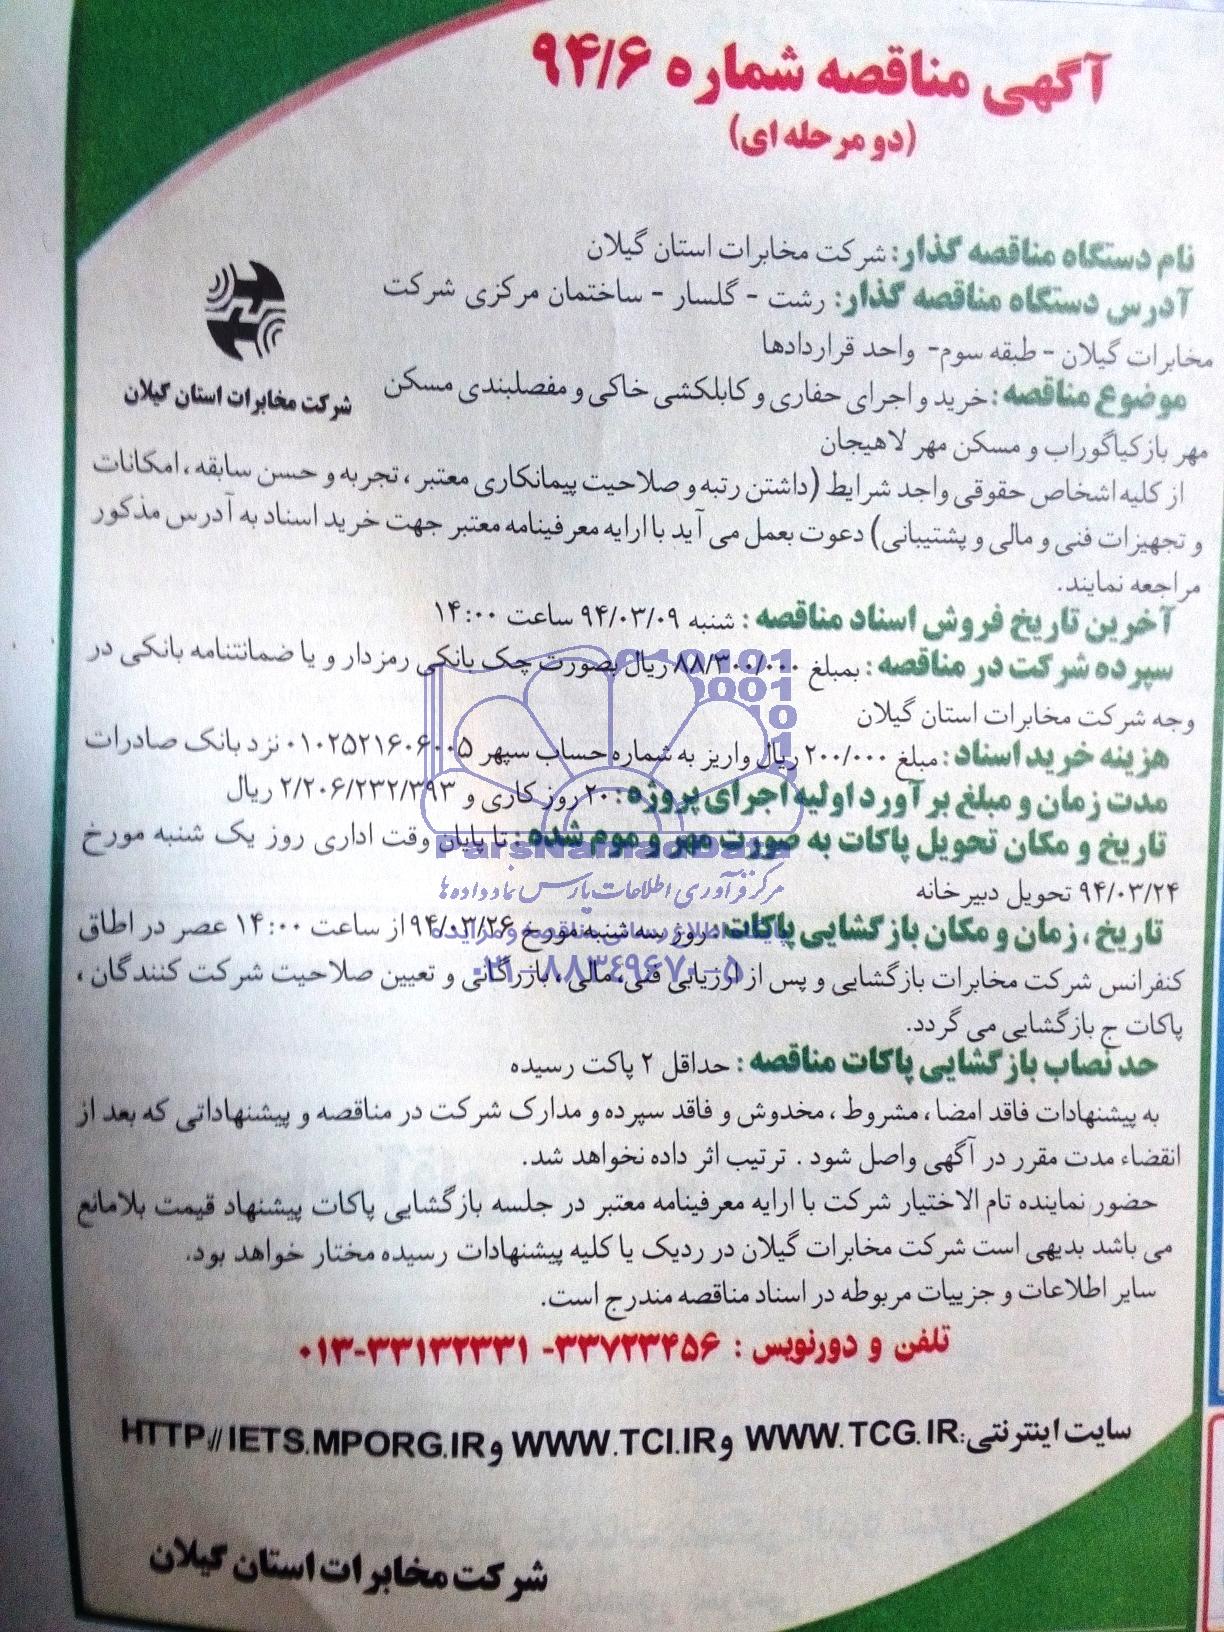 آگهی مناقصه شماره ۹۴/۶
(دو مرحله ای)
نام دستگاه مناقصه گذار: شرکت مخابرات استان گیلان
آدرس دستگاه مناقصه گذار: رشت - گلسار - ساختمان مرکزی شرکت
مخابرات گیلان - طبقه سوم- واحد قراردادها
شرکت مخابرات استان گیلان
موضوع مناقصه: خرید و اجرای حفاری و کابلکشی خاکی و مفصلبندی مسکن
مهر بازکیاگوراب و مسکن مهر لاهیجان
از کلیه اشخاص حقوقی واجد شرایط (داشتن رتبه و صلاحیت پیمانکاری معتبر، تجربه و حسن سابقه، امکانات
و تجهیزات فنی و مالی و پشتیبانی) دعوت بعمل می آید با ارایه معرفینامه معتبر جهت خرید اسناد به آدرس مذکور
مراجعه نمایند.
آخرین تاریخ فروش اسناد مناقصه : شنبه ۹۴/۰۳/۰۹ ساعت ۱۴:۰۰
سپرده شرکت در مناقصه : بمبلغ ۸۸/۳۰۰/۰۰۰ ریال بصورت چک بانکی رمزدار و یا ضمانتنامه بانکی در
وجه شرکت مخابرات استان گیلان
هزینه خرید اسناد : مبلغ ۲۰۰/۰۰۰ ریال واریز به شماره حساب سپهر ۰۱۰۲۵۲۱۶۰۶۰۰۵ نزد بانک صادرات
مدت زمان و مبلغ برآورد اولیه اجرای پروژه : ۲۰ روز کاری و ۲/۲۰۶/۲۳۲/۳۹۳ ریال
تاریخ و مکان تحویل پاکات به صورت مهر و موم شده : تا پایان وقت اداری روز یک شنبه مورخ
۹۴/۰۳/۲۴ تحویل دبیرخانه
تاریخ، زمان و مکان بازگشایی پاکات : روز سه شنبه مورخ ۹۴/۰۳/۲۶ از ساعت ۱۴:۰۰ عصر در اطاق
کنفرانس شرکت مخابرات بازگشایی و پس از ارزیابی فنی، مالی، بازرگانی و تعیین صلاحیت شرکت کنندگان ،
پاکات ج بازگشایی می گردد.
حد نصاب بازگشایی پاکات مناقصه : حداقل ۲ پاکت رسیده
به پیشنهادات فاقد امضا ، مشروط ، مخدوش و فاقد سپرده و مدارک شرکت در مناقصه و پیشنهاداتی که بعد از
انقضاء مدت مقرر در آگهی واصل شود . ترتیب اثر داده نخواهد شد.
حضور نماینده تام الاختیار شرکت با ارایه معرفینامه معتبر در جلسه بازگشایی پاکات پیشنهاد قیمت بلامانع
می باشد بدیهی است شرکت مخابرات گیلان در ردیک یا کلیه پیشنهادات رسیده مختار خواهد بود.
سایر اطلاعات و جزییات مربوطه در اسناد مناقصه مندرج است.
تلفن و دورنویس : ۳۳۷۲۳۴۵۶- ۰۱۳-۳۳۱۳۲۳۳۱
سایت اینترنتی: WWW.TCG.IR و WWW.TCI.IR و HTTP://IETS.MPORG.IR
شرکت مخابرات استان گیلان
010101
0001
10
1
ParsNamadData
مرکز فرآوری اطلاعات پارس نماد داده ها
پایگاه اطلاع رسانی مناقصه و مزایده
۰۲۱-۸۸۳۴۹۶۷۰-۵